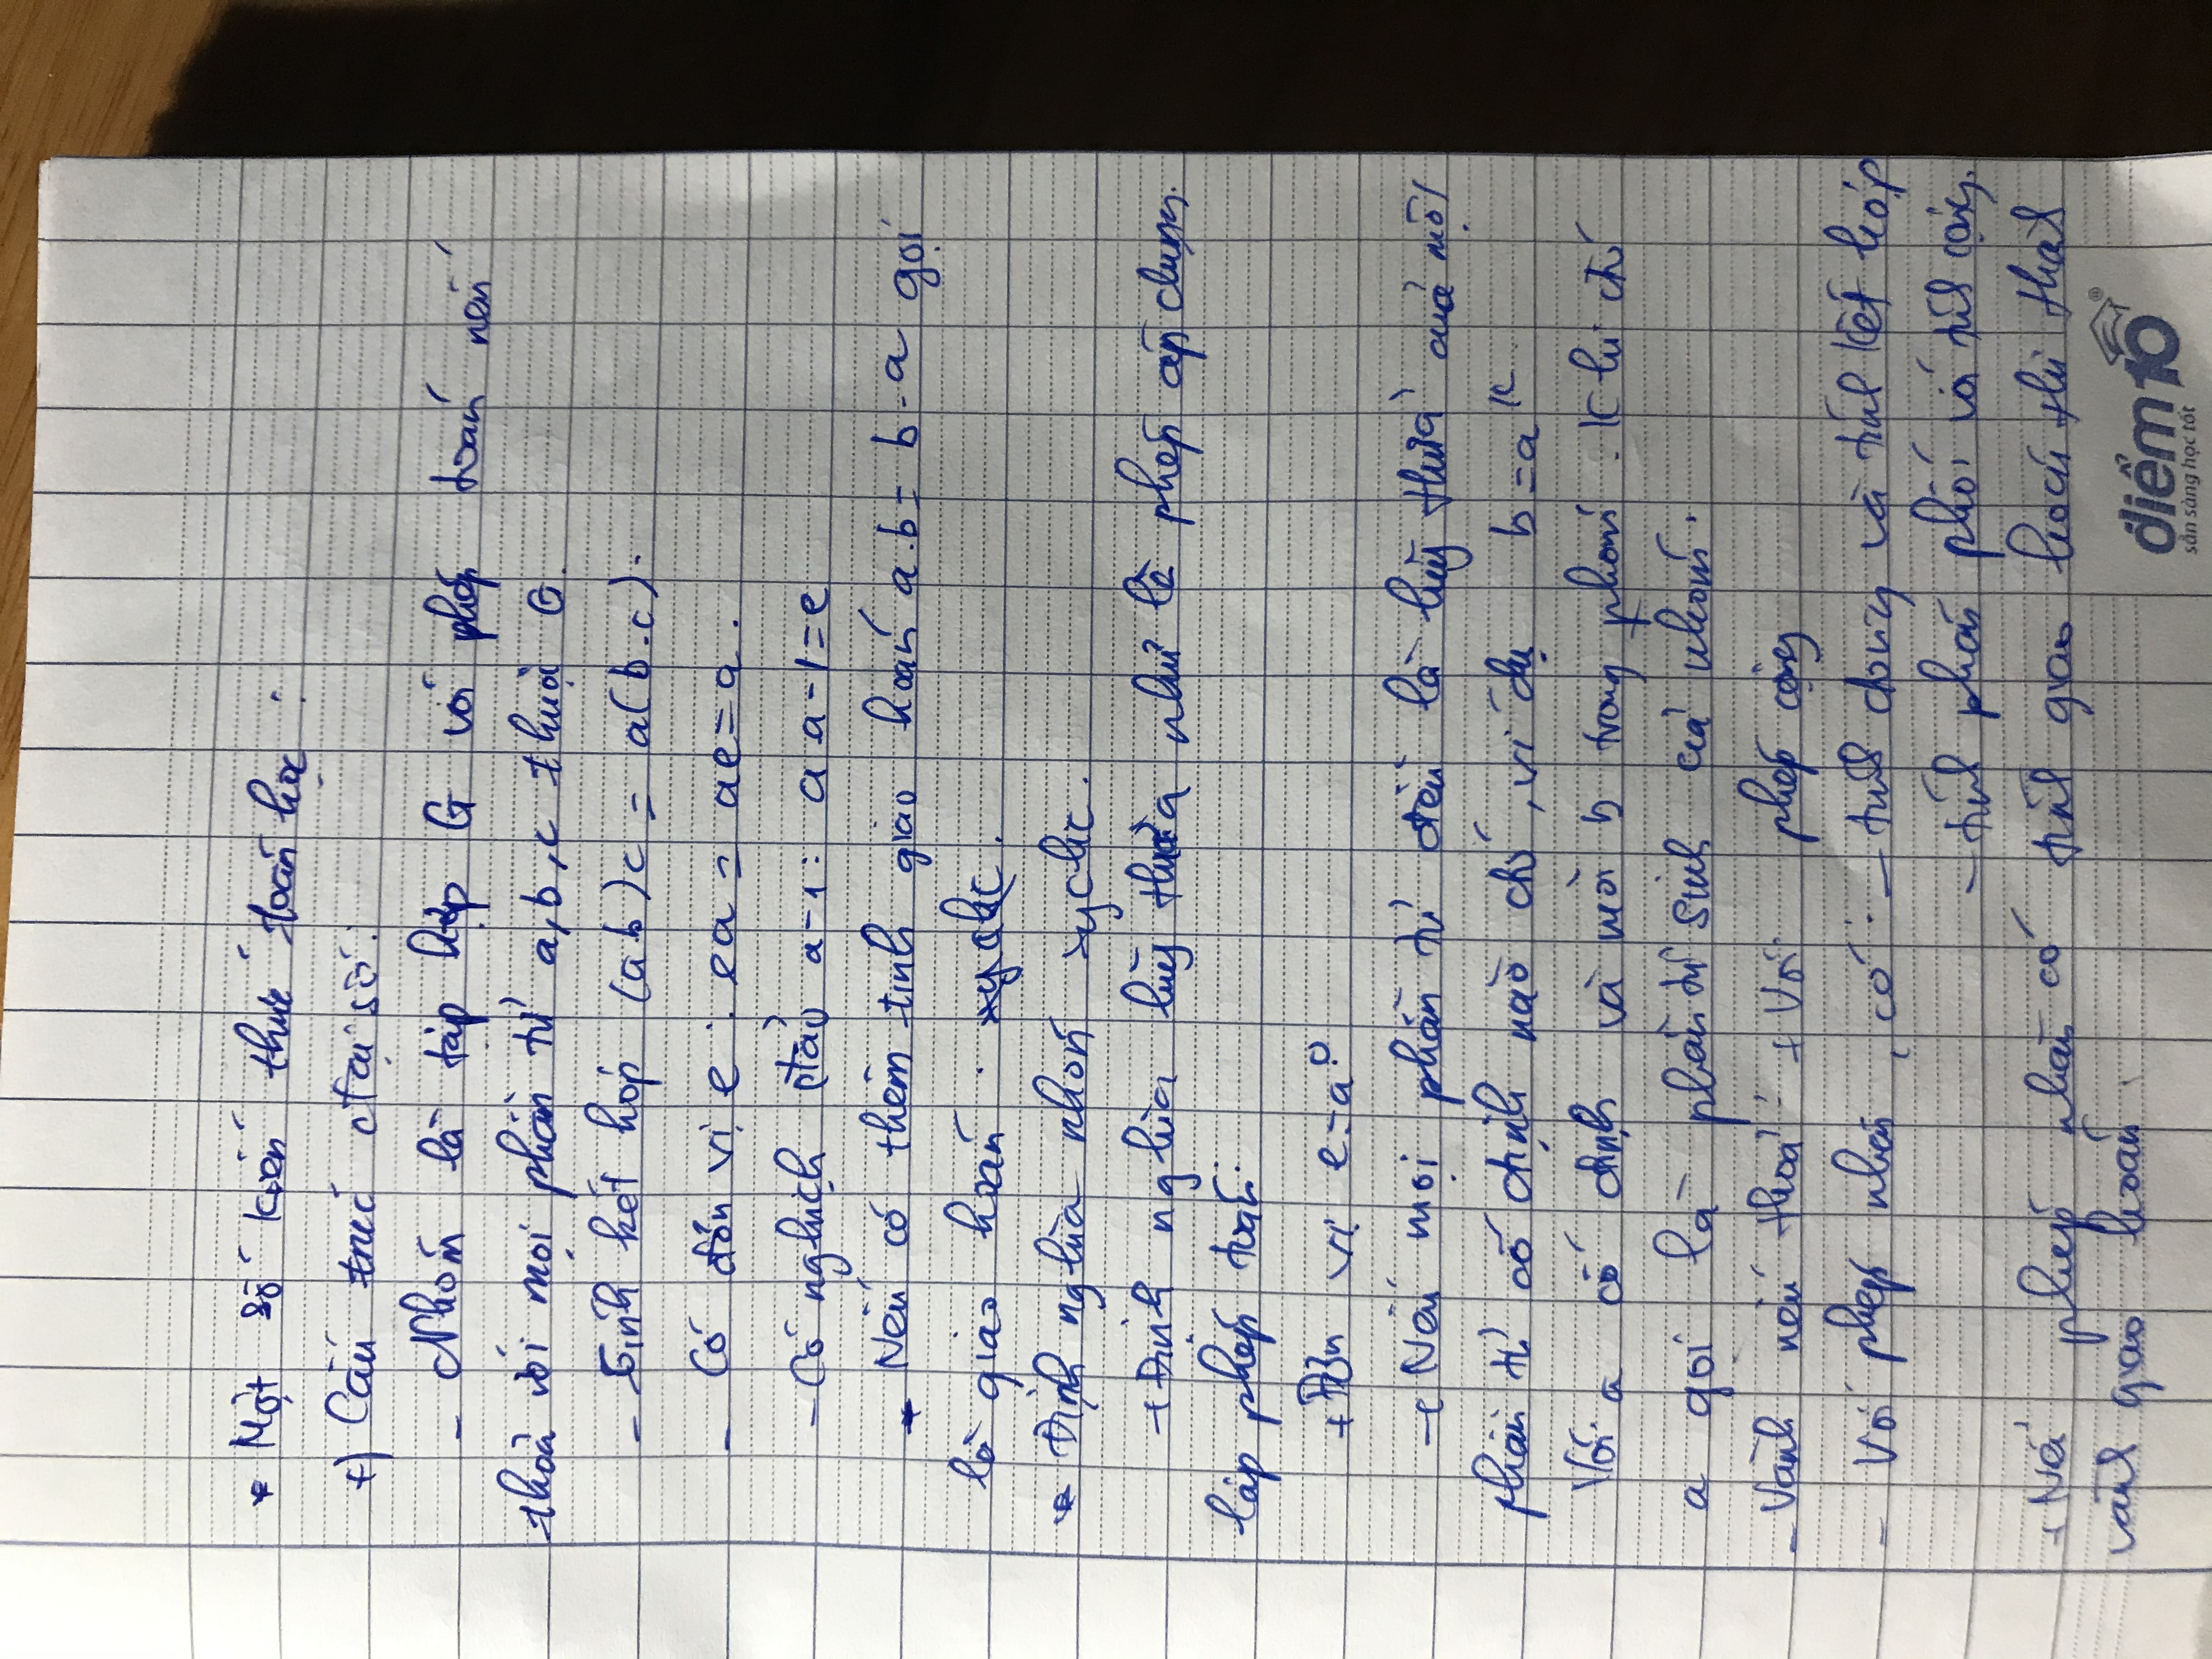 * Một số kiến thức toán học :
+) Cấu trúc đại số :
- Nhóm là tập hợp G với phép toán nếu
thoả với mọi phần tử a, b, c thuộc G.
- Tính kết hợp (a.b)c = a(b.c).
- Có đơn vị e : ea = ae = a.
- Có nghịch đảo a-1 : a a-1 = e
* Nếu có thêm tính giáo hoán a.b = b.a gọi
là giáo hoán . xyclic.
* Định nghĩa nhóm xyclic.
+ Định nghĩa luỹ thừa như là phép áp dụng.
lặp phép toán:
+ Đơn vị e = a⁰
+ Nếu mọi phần tử đều là luỹ thừa của một
phần tử cố định nào đó, ví dụ b = a^k
Với a cố định và mỗi b trong nhóm. Khi đó
a gọi là phần tử sinh của nhóm.
- Vành nếu thoả : + Với phép cộng
- Với phép nhân, có : - tính đóng và tính kết hợp
- tính phân phối và tính cộng.
+ Nếu phép nhân có tính giao hoán thì thành
vành giao hoán.
điểm10®
sẵn sàng học tốt